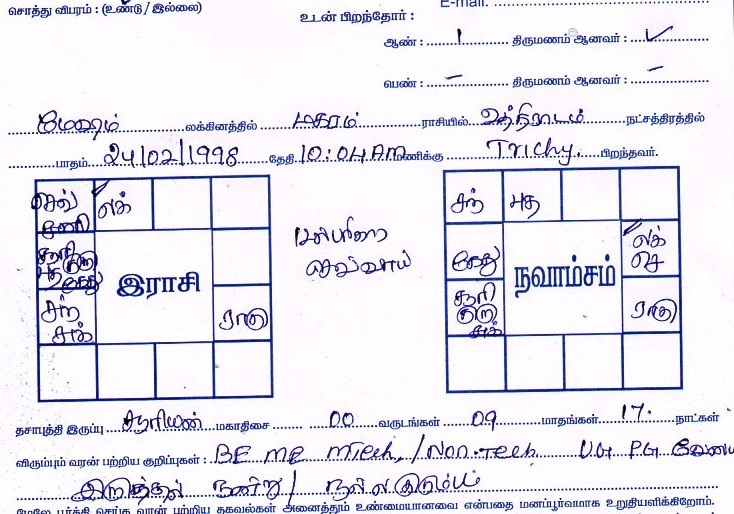 சொத்து விபரம் : (உண்டு / இல்லை)
E-mail:
உடன் பிறந்தோர் :
ஆண் : 1 திருமணம் ஆனவர் : ✓
பெண் : – திருமணம் ஆனவர் : –
மேஷம் லக்கினத்தில் மகரம் ராசியில் உத்திராடம் நட்சத்திரத்தில்
மாதம் 24/02/1998 தேதி 10:04 AM மணிக்கு Trichy. பிறந்தவர்.
செவ் சனி
லக்
சூரி புத குரு கேது
இராசி
சந் சுக்
ராகு
செவ்வாய்
சந்
புத
கேது
லக் செ
நவாம்சம்
சூரி குரு சுக்
ராகு
தசாபுத்தி இருப்பு சூரியன் மகாதிசை 00 வருடங்கள் 09 மாதங்கள் 17. நாட்கள்
விரும்பும் வரன் பற்றிய குறிப்புகள் : BE ME MTech, / Non-Tech UG PG வேலை
இருத்தல் நன்று / நல்ல குடும்பம்
மேலே பூர்த்தி செய்த வரன் பற்றிய தகவல்கள் அனைத்தும் உண்மையானவை என்பதை மனப்பூர்வமாக உறுதியளிக்கிறோம்.